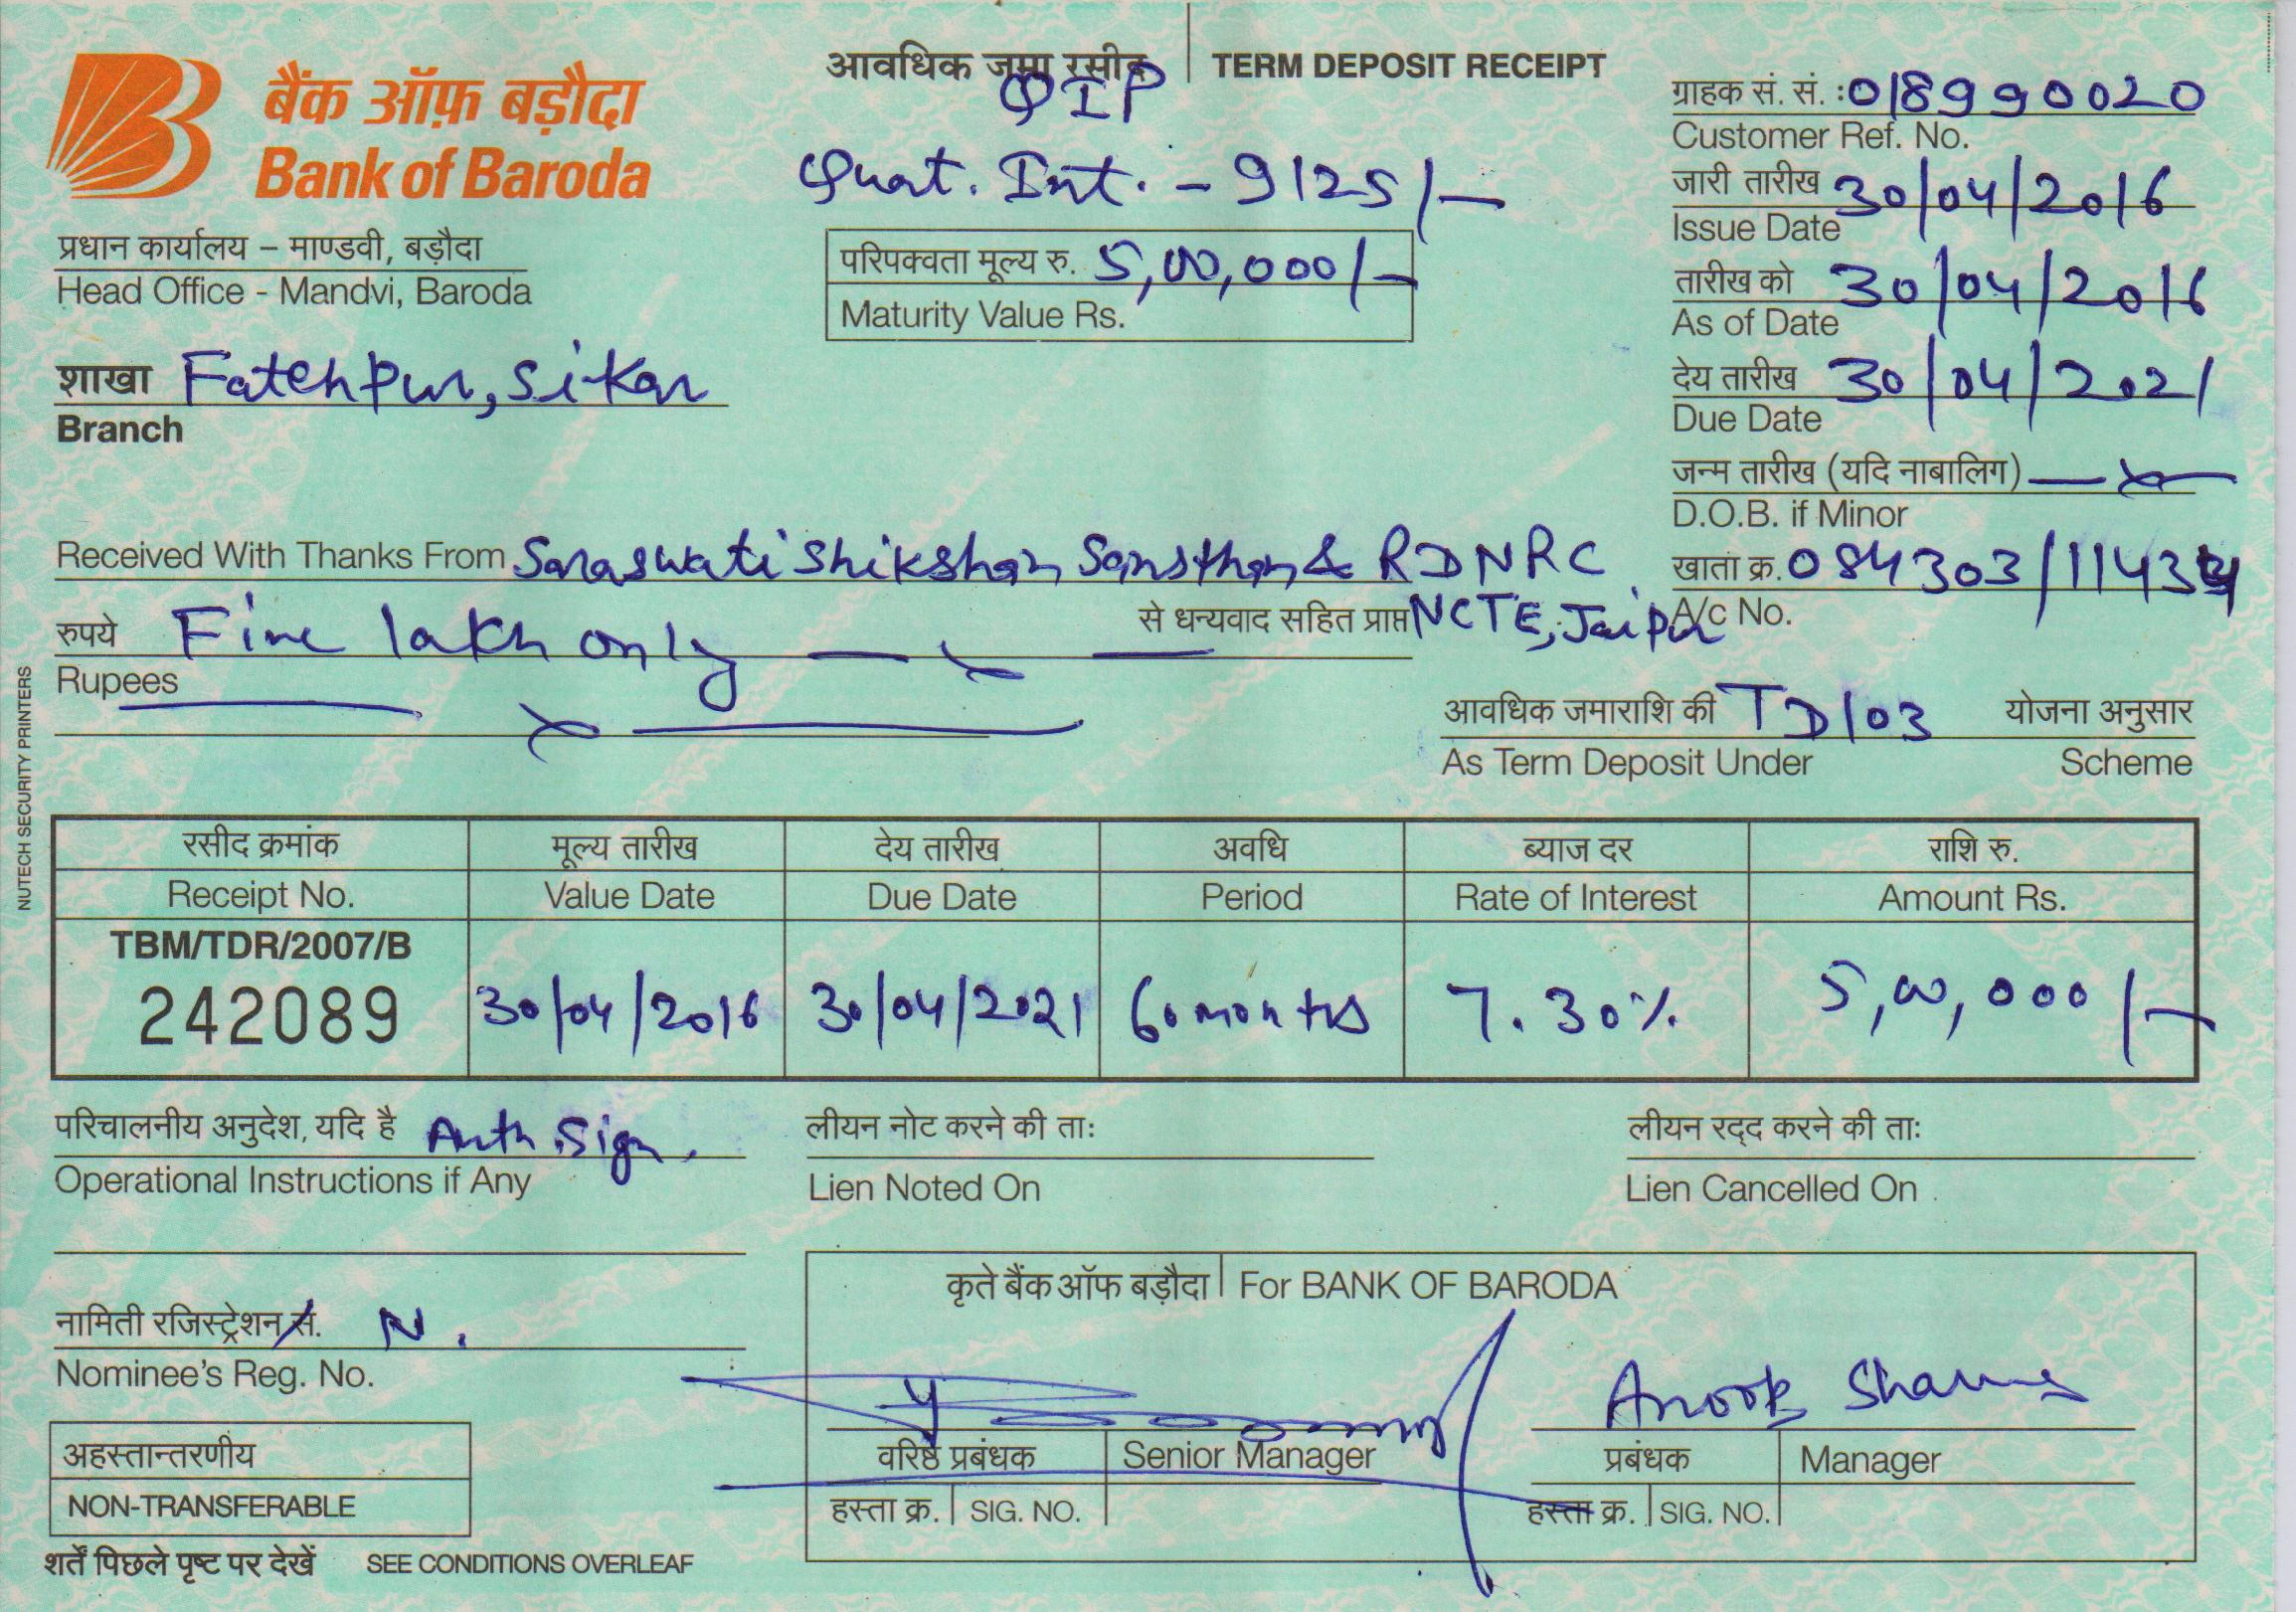 आवधिक जमा रसीद | TERM DEPOSIT RECEIPT
QIP
बैंक ऑफ़ बड़ौदा
Bank of Baroda
Quat. Int. - 9125/-
प्रधान कार्यालय – माण्डवी, बड़ौदा
Head Office - Mandvi, Baroda
परिपक्वता मूल्य रु. 5,00,000/-
Maturity Value Rs.
शाखा Fatehpur, Sikar
Branch
ग्राहक सं. सं. : 018990020
Customer Ref. No.
जारी तारीख 30/04/2016
Issue Date
तारीख को 30/04/2016
As of Date
देय तारीख 30/04/2021
Due Date
जन्म तारीख (यदि नाबालिग)
D.O.B. if Minor
खाता क्र. 084303/1143
A/c No.
Received With Thanks From Saraswati Shikshan Sansthan & RDNRC
से धन्यवाद सहित प्राप्त NCTE, Jaipur
रुपये Five lakh only
Rupees
आवधिक जमाराशि की TD/03 योजना अनुसार
As Term Deposit Under Scheme
NUTECH SECURITY PRINTERS
रसीद क्रमांक मूल्य तारीख देय तारीख अवधि ब्याज दर राशि रु.
Receipt No. Value Date Due Date Period Rate of Interest Amount Rs.
TBM/TDR/2007/B
242089 30/04/2016 30/04/2021 60 months 7.30% 5,00,000/-
परिचालनीय अनुदेश, यदि है Auth. Sign.
Operational Instructions if Any
लीयन नोट करने की ताः
Lien Noted On
लीयन रद्द करने की ताः
Lien Cancelled On
नामिती रजिस्ट्रेशन सं. N.
Nominee's Reg. No.
कृते बैंक ऑफ बड़ौदा | For BANK OF BARODA
Anoop Sharma
वरिष्ठ प्रबंधक | Senior Manager
हस्ता क्र. | SIG. NO.
प्रबंधक | Manager
हस्ता क्र. | SIG. NO.
अहस्तान्तरणीय
NON-TRANSFERABLE
शर्तें पिछले पृष्ट पर देखें SEE CONDITIONS OVERLEAF